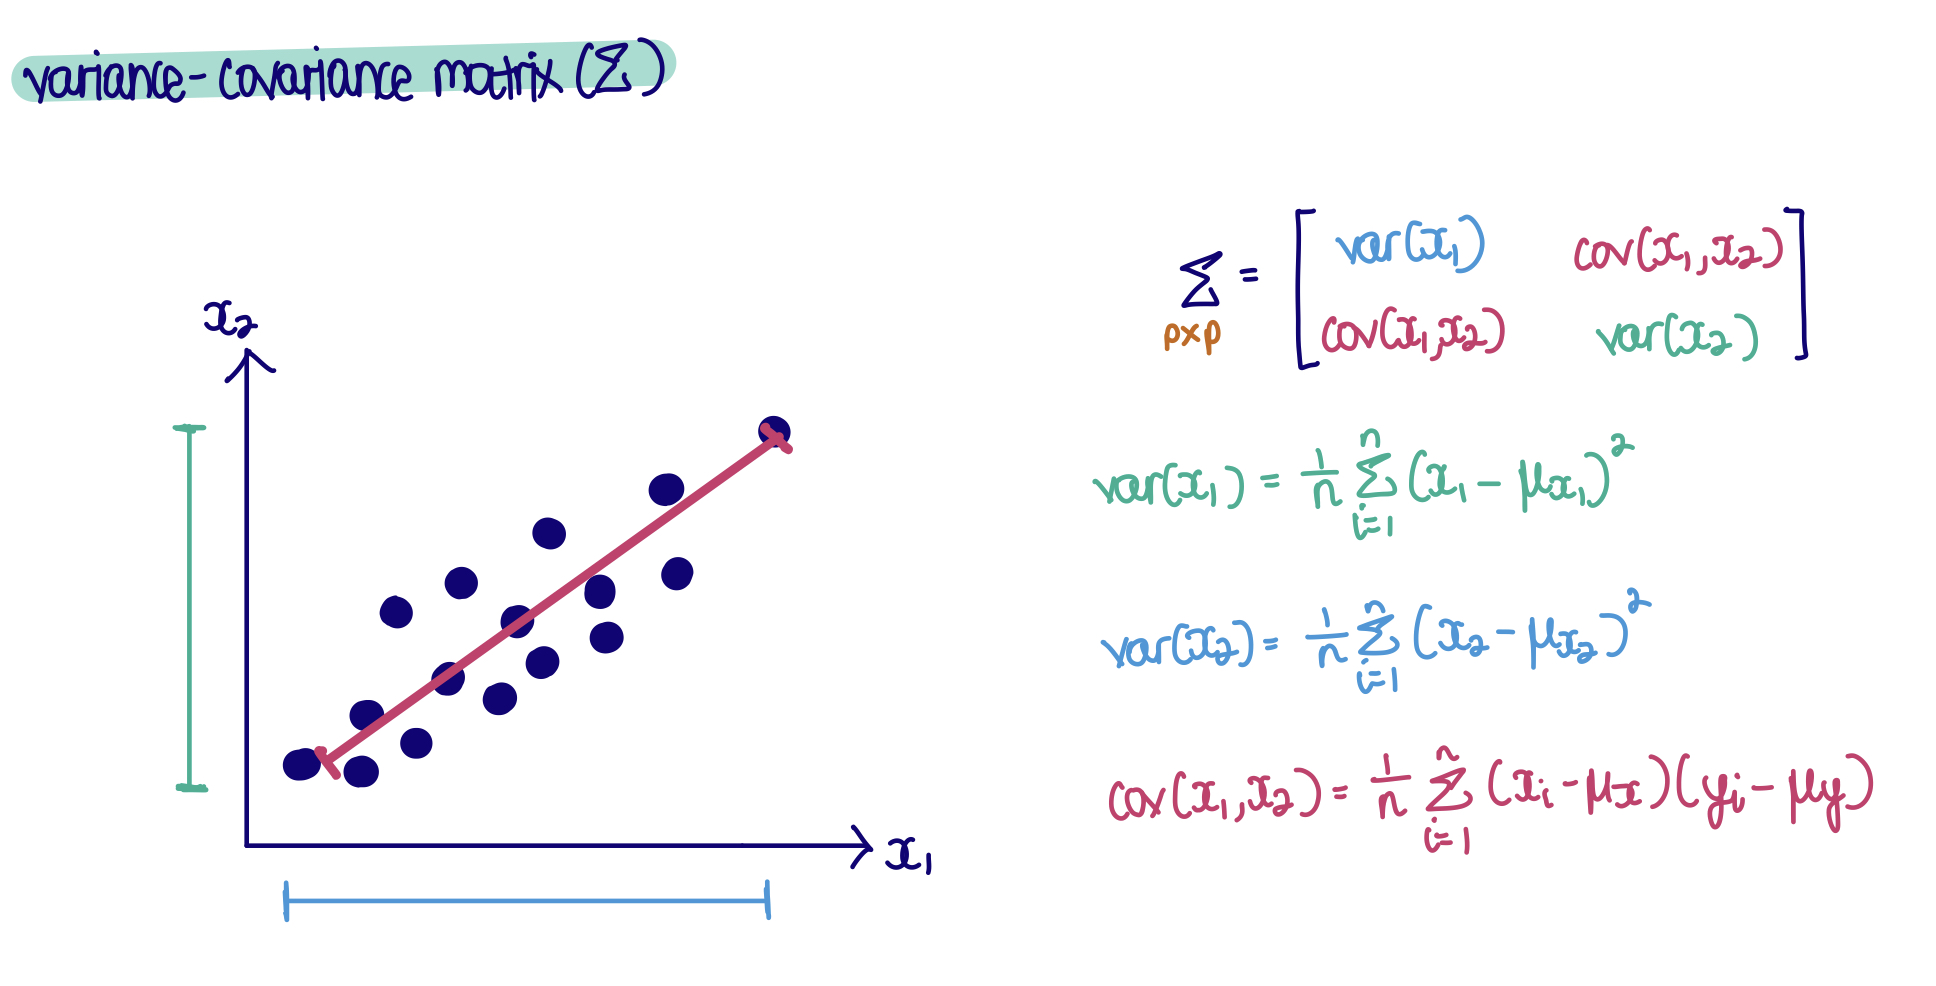 variance-covariance matrix (Σ)
x₂
x₁
Σ = [ var(x₁) cov(x₁,x₂)
p×p cov(x₁,x₂) var(x₂) ]
var(x₁) = 1/n Σ_{i=1}^{n} (x₁ - μ_{x₁})²
var(x₂) = 1/n Σ_{i=1}^{n} (x₂ - μ_{x₂})²
cov(x₁,x₂) = 1/n Σ_{i=1}^{n} (xᵢ - μ_x)(yᵢ - μ_y)